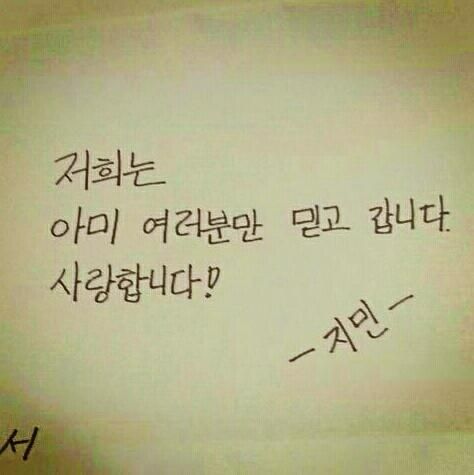 저희는
아미 여러분만 믿고 갑니다.
사랑합니다!
- 지민 -
서